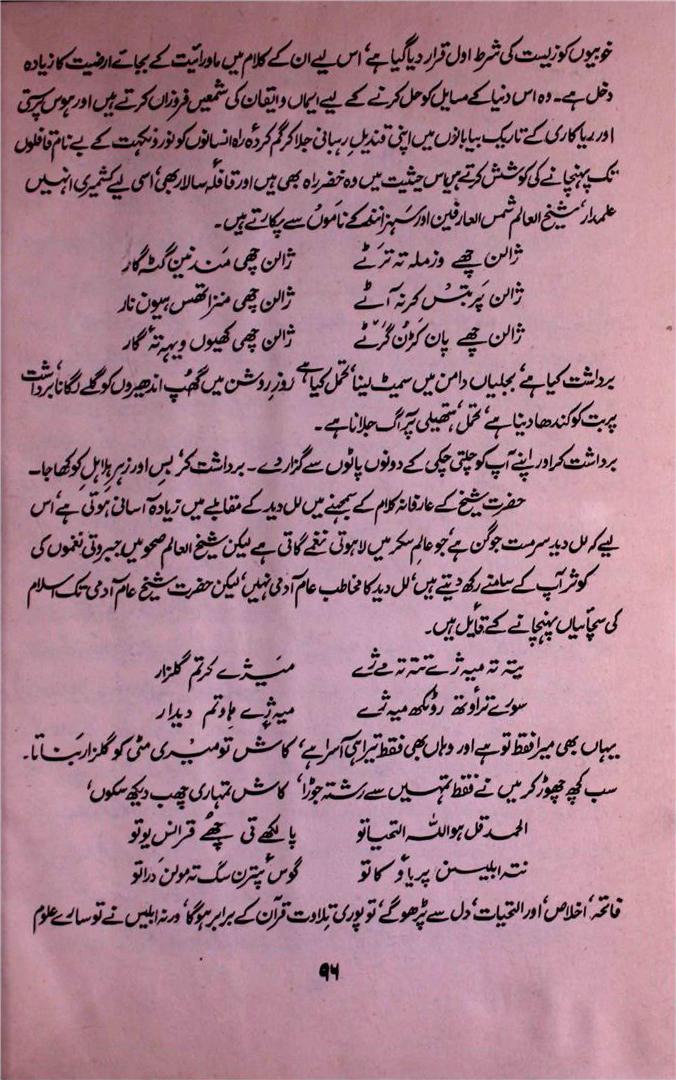 خوبیوں کو زیست کی شرط اول قرار دیا گیا ہے، اس لیے ان کے کلام میں ماورائیت کے بجائے ارضیت کا زیادہ
دخل ہے۔ وہ اس دنیا کے مسایل کو حل کرنے کے لیے ایمان و ایقان کی شمعیں فروزاں کرتے ہیں اور ہوس پرستی
اور ریاکاری کے تاریک بیابانوں میں اپنی قندیل رہبانی جلا کر گم کردہ راہ انسانوں کو نور و نکہت کے بے نام قافلوں
تک پہنچانے کی کوشش کرتے ہیں اس حیثیت میں وہ خضر راہ بھی ہیں اور قافلہ سالار بھی، اسی لیے کشمیری انہیں
علمدار، شیخ العالم شمس العارفین اور سہز انند کے ناموں سے پکارتے ہیں۔
ژالن چھے وزملہ تہ ترٹے ژالن چھی مندنین گٹہ گار
ژالن پربتس کرنہ آٹے ژالن چھی منز اتھس ہیون نار
ژالن چھے پان کڑن گرٹے ژالن چھی کھیوں ویہہ تہٕ گار
برداشت کیا ہے، بجلیاں دامن میں سمیٹ لینا، تحمل کیا ہے روز روشن میں گھپ اندھیروں کو گلے لگانا، برداشت
پربت کو کندھا دینا ہے، تحمل، ہتھیلی پر آگ جلانا ہے۔
برداشت کر اور اپنے آپ کو چلتی چکی کے دونوں پاٹوں سے گزار دے۔ برداشت کر، بس اور زہر ہلاہل کو کھا جا۔
حضرت شیخ کے عارفانہ کلام کے سمجھنے میں لل دید کے مقابلے میں زیادہ آسانی ہوتی ہے، اس
لیے کہ لل دید سرمست جوگن ہے، جو عالم سکر میں لاہوتی نغمے گاتی ہے لیکن شیخ العالم صحو میں جبروتی نغموں کی
کوثر آپ کے سامنے رکھ دیتے ہیں، لل دید کا مخاطب عام آدمی نہیں، لیکن حضرت شیخ عام آدمی تک اسلام
کی سچائیاں پہنچانے کے قایل ہیں۔
یتہ تہ میہ ژے تتہ تہ مے ژے میژے کرتم گلزار
سورے تراوتھ روٹکھ میہ ژے میہ ژے ہاوتم دیدار
یہاں بھی میرا فقط تو ہے اور وہاں بھی فقط تیرا ہی آسرا ہے، کاش تو میری مٹی کو گلزار بناتا۔
سب کچھ چھوڑ کر میں نے فقط تمہیں سے رشتہ جوڑا، کاش تمہاری چھب دیکھ سکوں،
الحمد قل ہو اللہ التحیاتو پالکھے تی چھے قرانس یوتو
نتہ ابلیسن پریاو کاتو گوس پترن سگ تہ مولن دراتو
فاتحہ، اخلاص، اور التحیات، دل سے پڑھو گے، تو پوری تلاوت قرآن کے برابر ہوگا، ورنہ ابلیس نے تو سارے علوم
۹۶